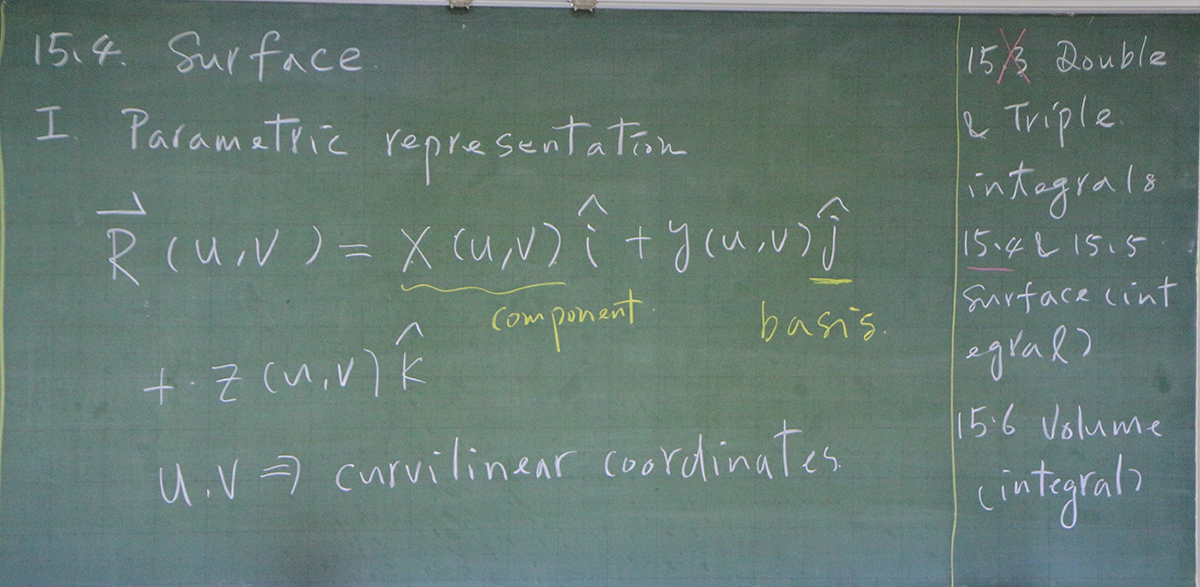 15.4. Surface
I. Parametric representation
R⃗ (u,v) = x (u,v) î + y (u,v) ĵ
component basis.
+ z (u,v) k̂
u.v ⇒ curvilinear coordinates.
15.3 Double
& Triple.
integrals
15.4 & 15.5
Surface (int
egral)
15.6 Volume
(integral)